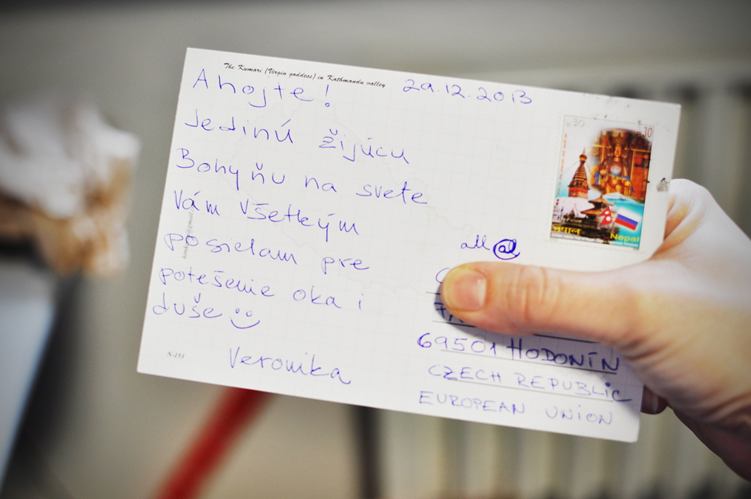 The Kumari (Virgin goddess) in Kathmandu valley
29.12.2013
Ahojte!
Jedinú žijúcu
Bohyňu na svete
Vám všetkým
posielam pre
potešenie oka i
duše
Veronika
N-155
10
नेपाल
Nepal
all @
69501 HODONÍN
CZECH REPUBLIC
EUROPEAN UNION